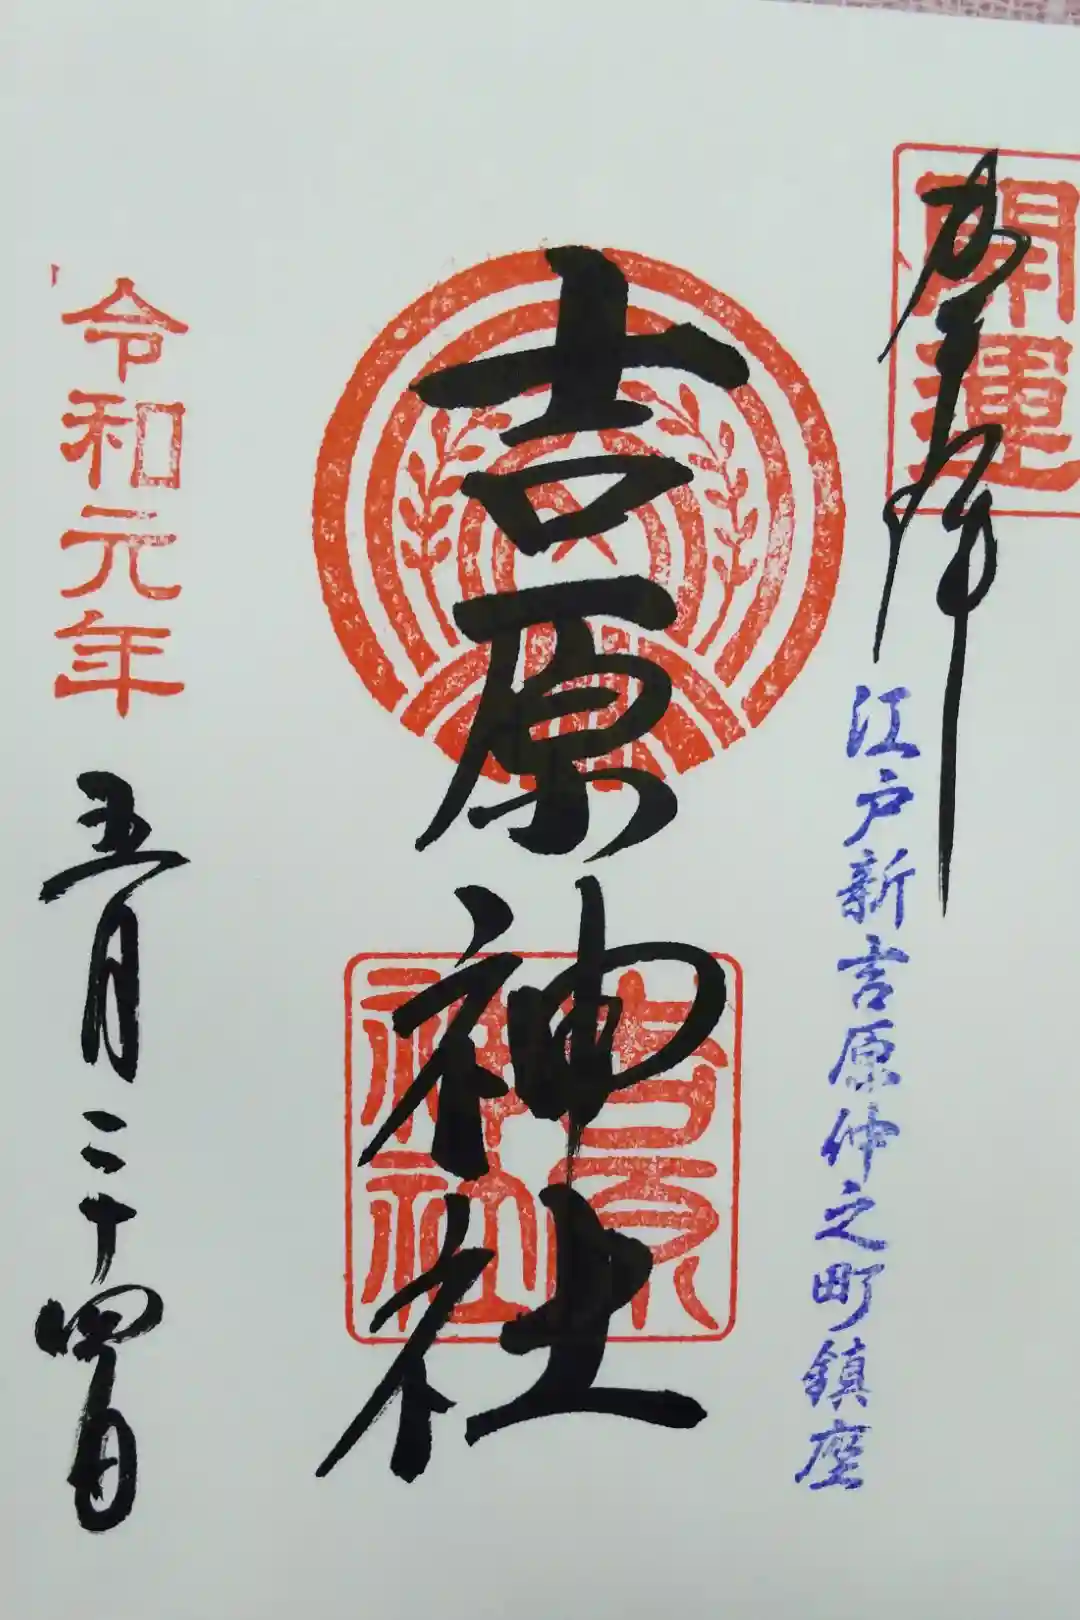 開運
奉拝
江戸新吉原仲之町鎮座
吉原神社
吉原神社
令和元年五月二十四日